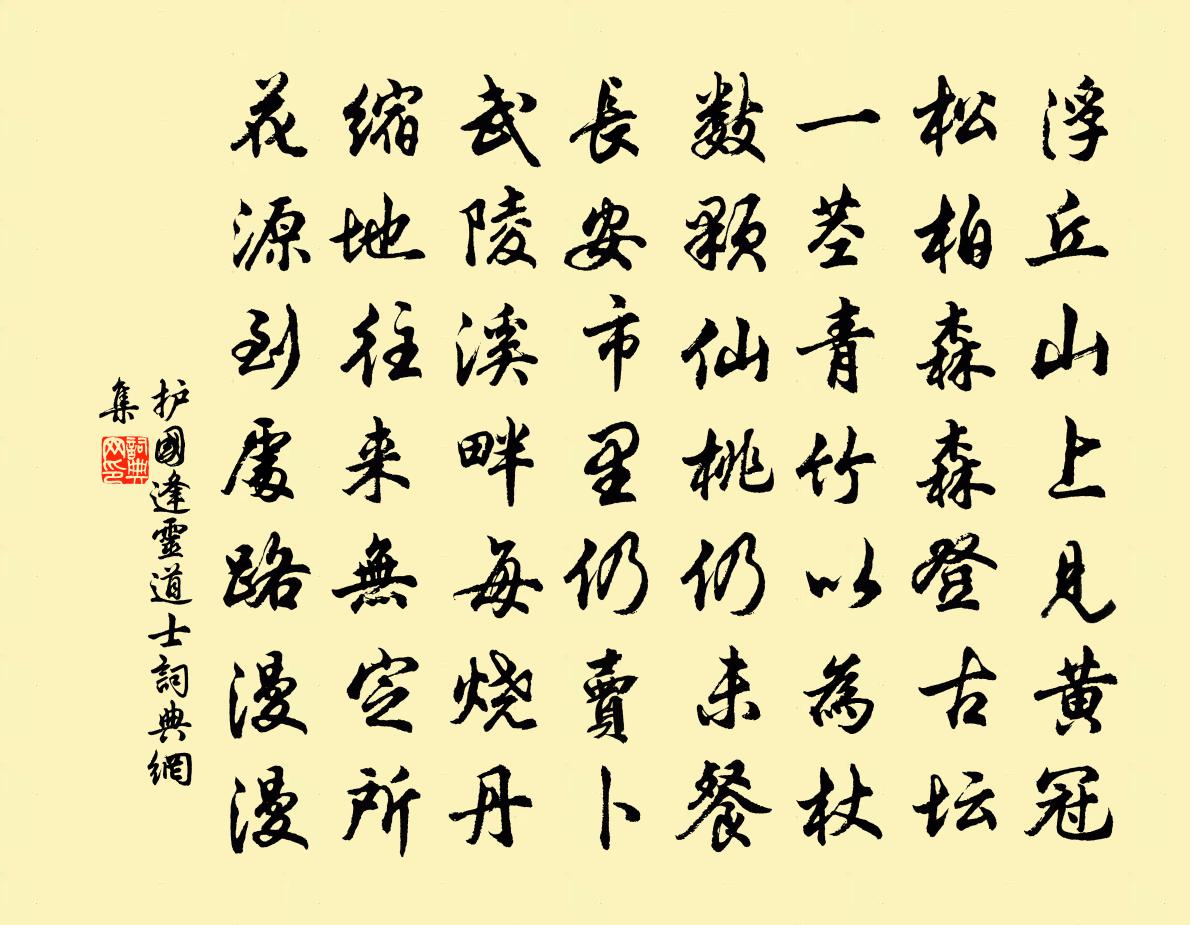 浮丘山上見黄冠
松柏森森登古坛
一茎青竹以為杖
数顆仙桃仍未餐
長安市里仍賣卜
武陵溪畔每烧丹
缩地往来無定所
花源到處路漫漫
护國逢靈道士詞典網
集
詞典
网印